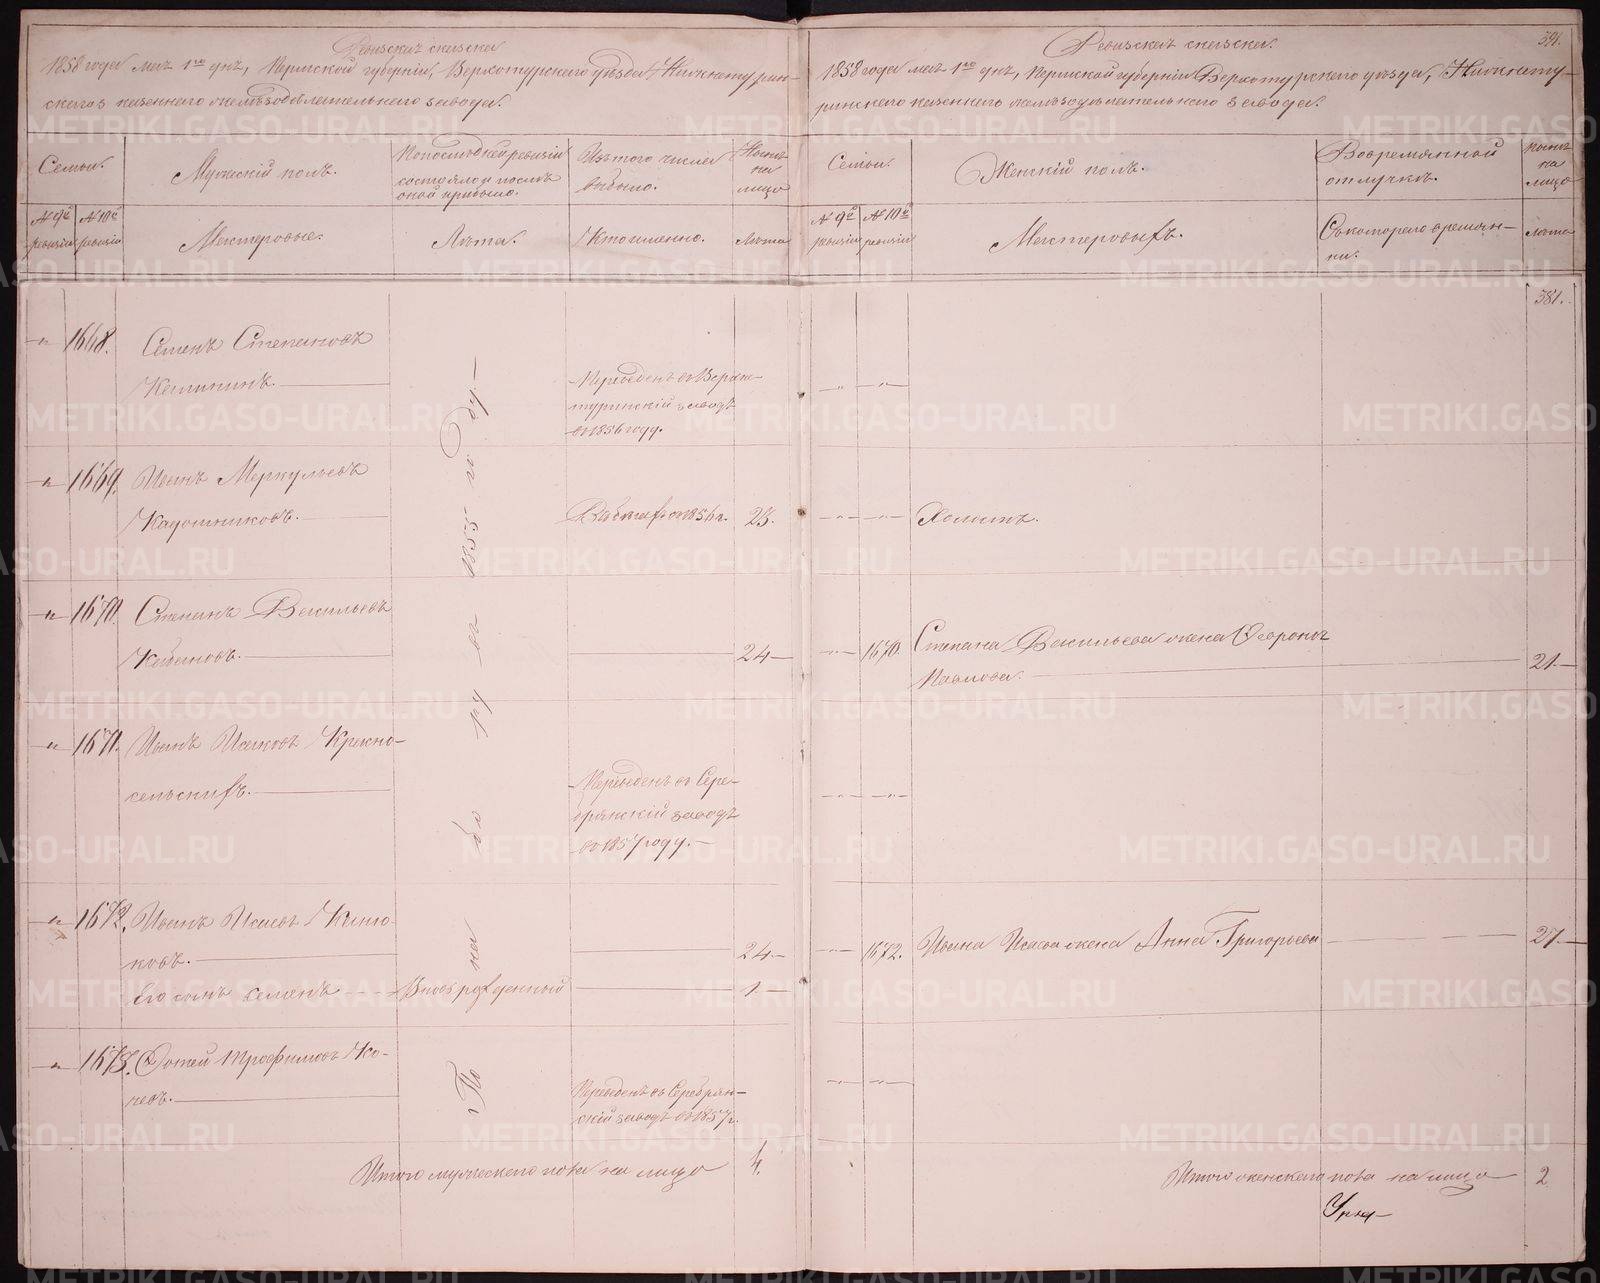 Ревизская сказка
1858 года мая 1го дня, Пермской губернiи, Верхотурского уѣзда, Нижнетурин-
скаго казеннаго желѣзодѣлательнаго завода.
Семьи.
Мужескiй полъ.
По послѣдней ревизiи
состояло и послѣ
оной прибыло.
Изъ того числа
выбыло.
Нынѣ
на
лицо
№ 9й
ревизiи
№ 10й
ревизiи
Мастеровые.
Лѣта.
Кто именно.
Лѣта
" 1668.
Семенъ Степановъ
Переведенъ въ Верхне-
туринскiй заводъ
въ 1856 году.
" 1669.
Иванъ Меркульевъ
Калошниковъ.
въ 1856 г.
23.
" 1670.
Степанъ Васильевъ
Кабановъ.
24
" 1671.
Иванъ Исаковъ Красно-
сельскихъ.
Переведенъ въ Сере-
брянскiй заводъ
въ 1857 году.
" 1672.
Иванъ Исаевъ
24
Его сынъ Семенъ
Вновьрожденный
1
" 1673.
Фотей Трофимовъ Ко-
невъ.
Переведенъ въ Серебрян-
скiй заводъ въ 1857 г.
По на бо ру въ 1855 го ду.
Итого мужескаго пола на лицо 4.
391.
Ревизская сказка.
1858 года мая 1го дня, Пермской губернiи Верхотурского уѣзда, Нижнету-
ринскаго казеннаго желѣзодѣлательнаго завода.
Семьи.
Женскiй полъ.
Во временной
отлучкѣ.
Нынѣ
на
лицо
№ 9й
ревизiи
№ 10й
ревизiи
Мастеровыхъ.
Съ котораго времян-
ни.
Лѣта
381.
" "
" "
Холостъ.
" 1670.
Степана Васильева жена
Павлова.
21
" "
" 1672.
Ивана Исаева жена Анна Григорьева
27
" "
Итого женскаго пола на лицо 2